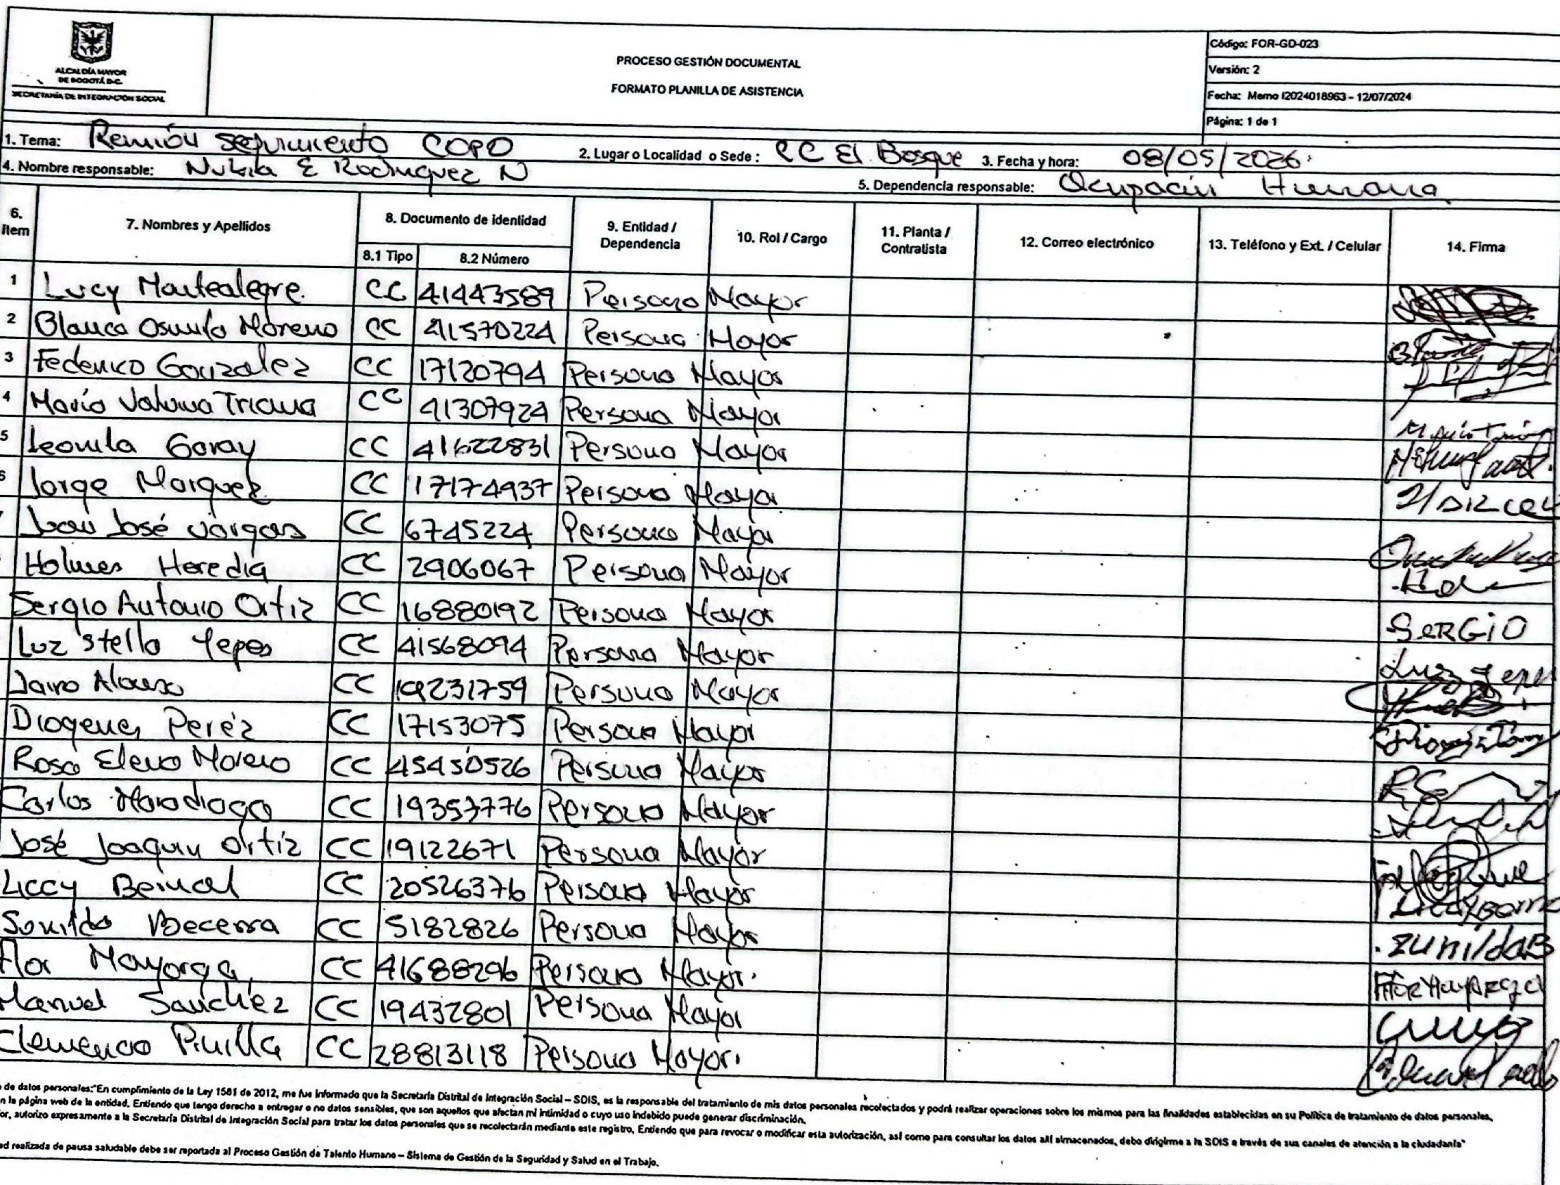 ALCALDÍA MAYOR
DE BOGOTÁ D.C.
SECRETARÍA DE INTEGRACIÓN SOCIAL
PROCESO GESTIÓN DOCUMENTAL
FORMATO PLANILLA DE ASISTENCIA
Código: FOR-GD-023
Versión: 2
Fecha: Memo I2024018963 – 12/07/2024
Página: 1 de 1
1. Tema: Reunión seguimiento COPO 2. Lugar o Localidad o Sede: CC El Bosque 3. Fecha y hora: 08/05/2026
4. Nombre responsable: Nubia E Rodriguez N 5. Dependencia responsable: Ocupación Humana
6. Ítem 7. Nombres y Apellidos 8. Documento de identidad 8.1 Tipo 8.2 Número 9. Entidad / Dependencia 10. Rol / Cargo 11. Planta / Contratista 12. Correo electrónico 13. Teléfono y Ext. / Celular 14. Firma
1 Lucy Montealegre CC 41443589 Persona Mayor
2 Blanca Moreno CC 41570224 Persona Mayor
3 Federico Gonzalez CC 17120794 Persona Mayor
4 María Triana CC 41307924 Persona Mayor
5 Leonila Garay CC 41622831 Persona Mayor
6 Jorge Marquez CC 17174937 Persona Mayor
Juan José Vargas CC 6745224 Persona Mayor
Holmes Heredia CC 2906067 Persona Mayor
Sergio Antonio Ortiz CC 16880192 Persona Mayor SERGIO
Luz Stella Yepes CC 41568094 Persona Mayor Luz Yepes
Jairo Alonso CC 19231759 Persona Mayor
Diogenes Peréz CC 17153075 Persona Mayor
Rosa Elena Moreno CC 45450526 Persona Mayor
Carlos CC 19353776 Persona Mayor
José Joaquin Ortiz CC 19122671 Persona Mayor
Liccy Bernal CC 20526376 Persona Mayor
Sunilda Becerra CC 5182826 Persona Mayor zunildaB
Flor Mayorga CC 41688296 Persona Mayor
Manuel Sanchez CC 19432801 Persona Mayor
Clemencia Pinilla CC 28813118 Persona Mayor
de datos personales:"En cumplimiento de la Ley 1581 de 2012, me fue informado que la Secretaría Distrital de Integración Social – SDIS, es la responsable del tratamiento de mis datos personales recolectados y podrá realizar operaciones sobre los mismos para las finalidades establecidas en su Política de tratamiento de datos personales,
en la página web de la entidad. Entiendo que tengo derecho a entregar o no datos sensibles, que son aquellos que afectan mi intimidad o cuyo uso indebido puede generar discriminación.
autorizo expresamente a la Secretaría Distrital de Integración Social para tratar los datos personales que se recolectarán mediante este registro, Entiendo que para revocar o modificar esta autorización, así como para consultar los datos allí almacenados, debo dirigirme a la SDIS a través de sus canales de atención a la ciudadanía"
realizada de pausa saludable debe ser reportada al Proceso Gestión de Talento Humano – Sistema de Gestión de la Seguridad y Salud en el Trabajo.